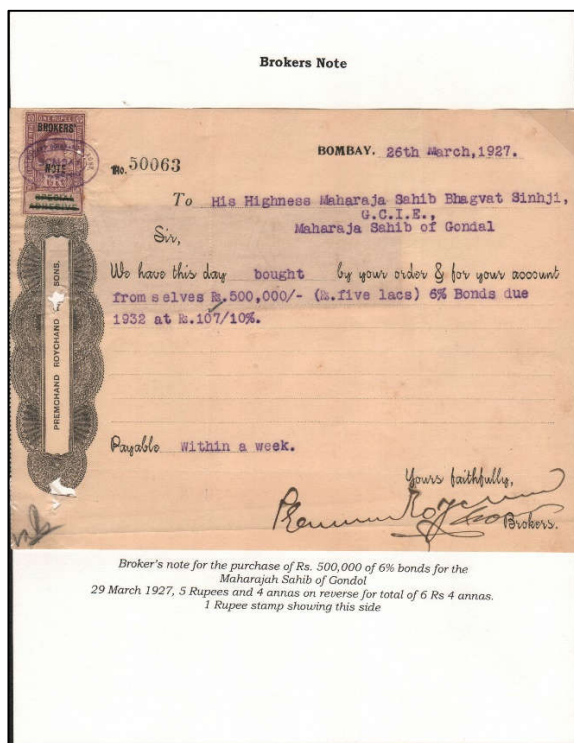 Brokers Note
ONE RUPEE
BROKERS'
NOTE
No. 50063
BOMBAY. 26th March, 1927.
To His Highness Maharaja Sahib Bhagvat Sinhji,
G.C.I.E.,
Maharaja Sahib of Gondal
Sir,
We have this day bought by your order & for your account
from selves Rs.500,000/- (Rs.five lacs) 6% Bonds due
1932 at Rs.107/10%.
PREMCHAND ROYCHAND SONS.
Payable Within a week.
Yours faithfully,
Brokers.
Broker's note for the purchase of Rs. 500,000 of 6% bonds for the
Maharajah Sahib of Gondol
29 March 1927, 5 Rupees and 4 annas on reverse for total of 6 Rs 4 annas.
1 Rupee stamp showing this side